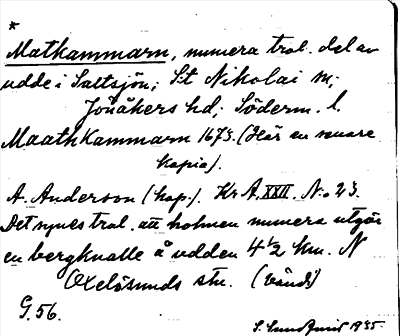 *
Matkammarn, numera trol. del av
udde i Saltsjön; St Nikolai sn;
Jönåkers hd; Söderm. l.
Maathkammarn 1673. (Här en senare
kopia).
A. Anderson (kop.). Kr A. XXII. No 23.
Det synes trol. att holmen numera utgör
en bergknalle å udden 4 1/2 km. N
Oxelösunds stn. (Vänd!)
G. 56.
1935.